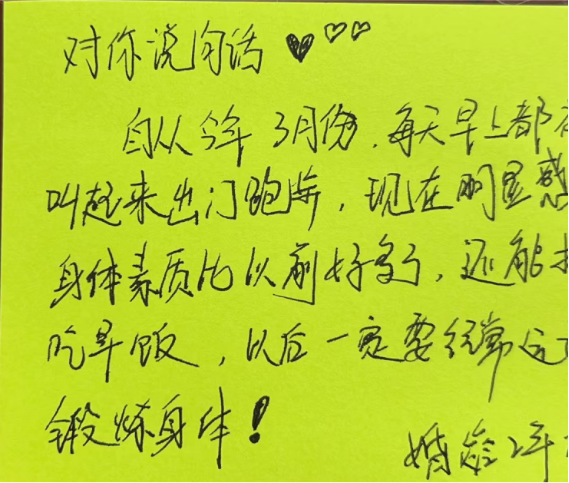 对你说句话
自从今年3月份,每天早上都
叫起来出门跑步,现在明显感
身体素质比以前好多了,还能
吃早饭,以后一定要经常运
锻炼身体!
婚龄2年